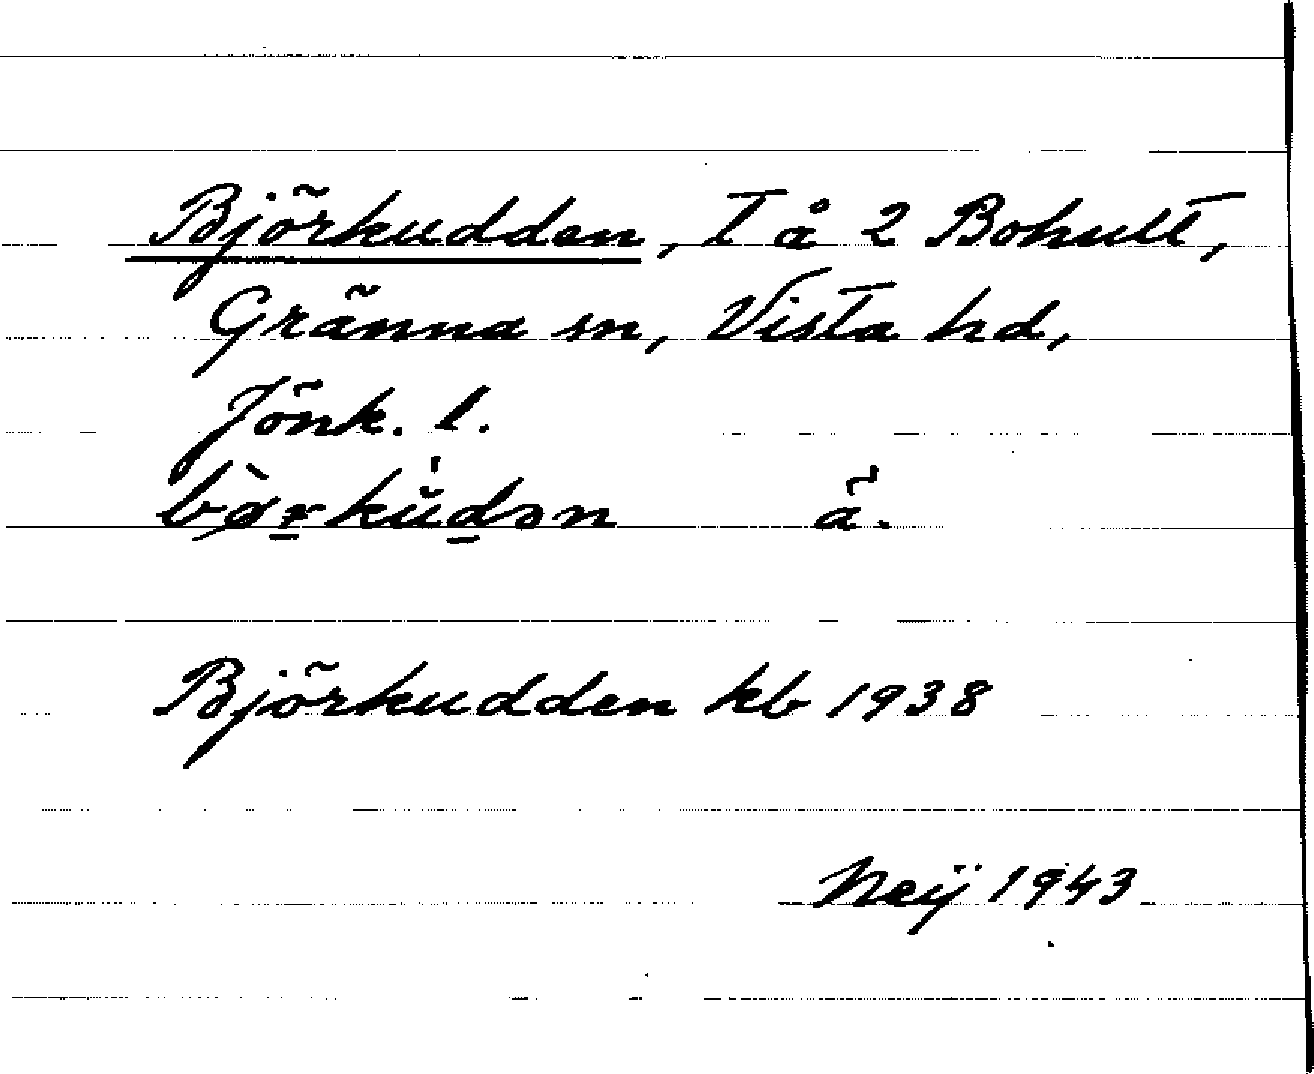 Björkudden, T å 2 Bohult,
Gränna sn, Vista hd,
Jönk. l.
ä.
Björkudden kb 1938
Neij 1943